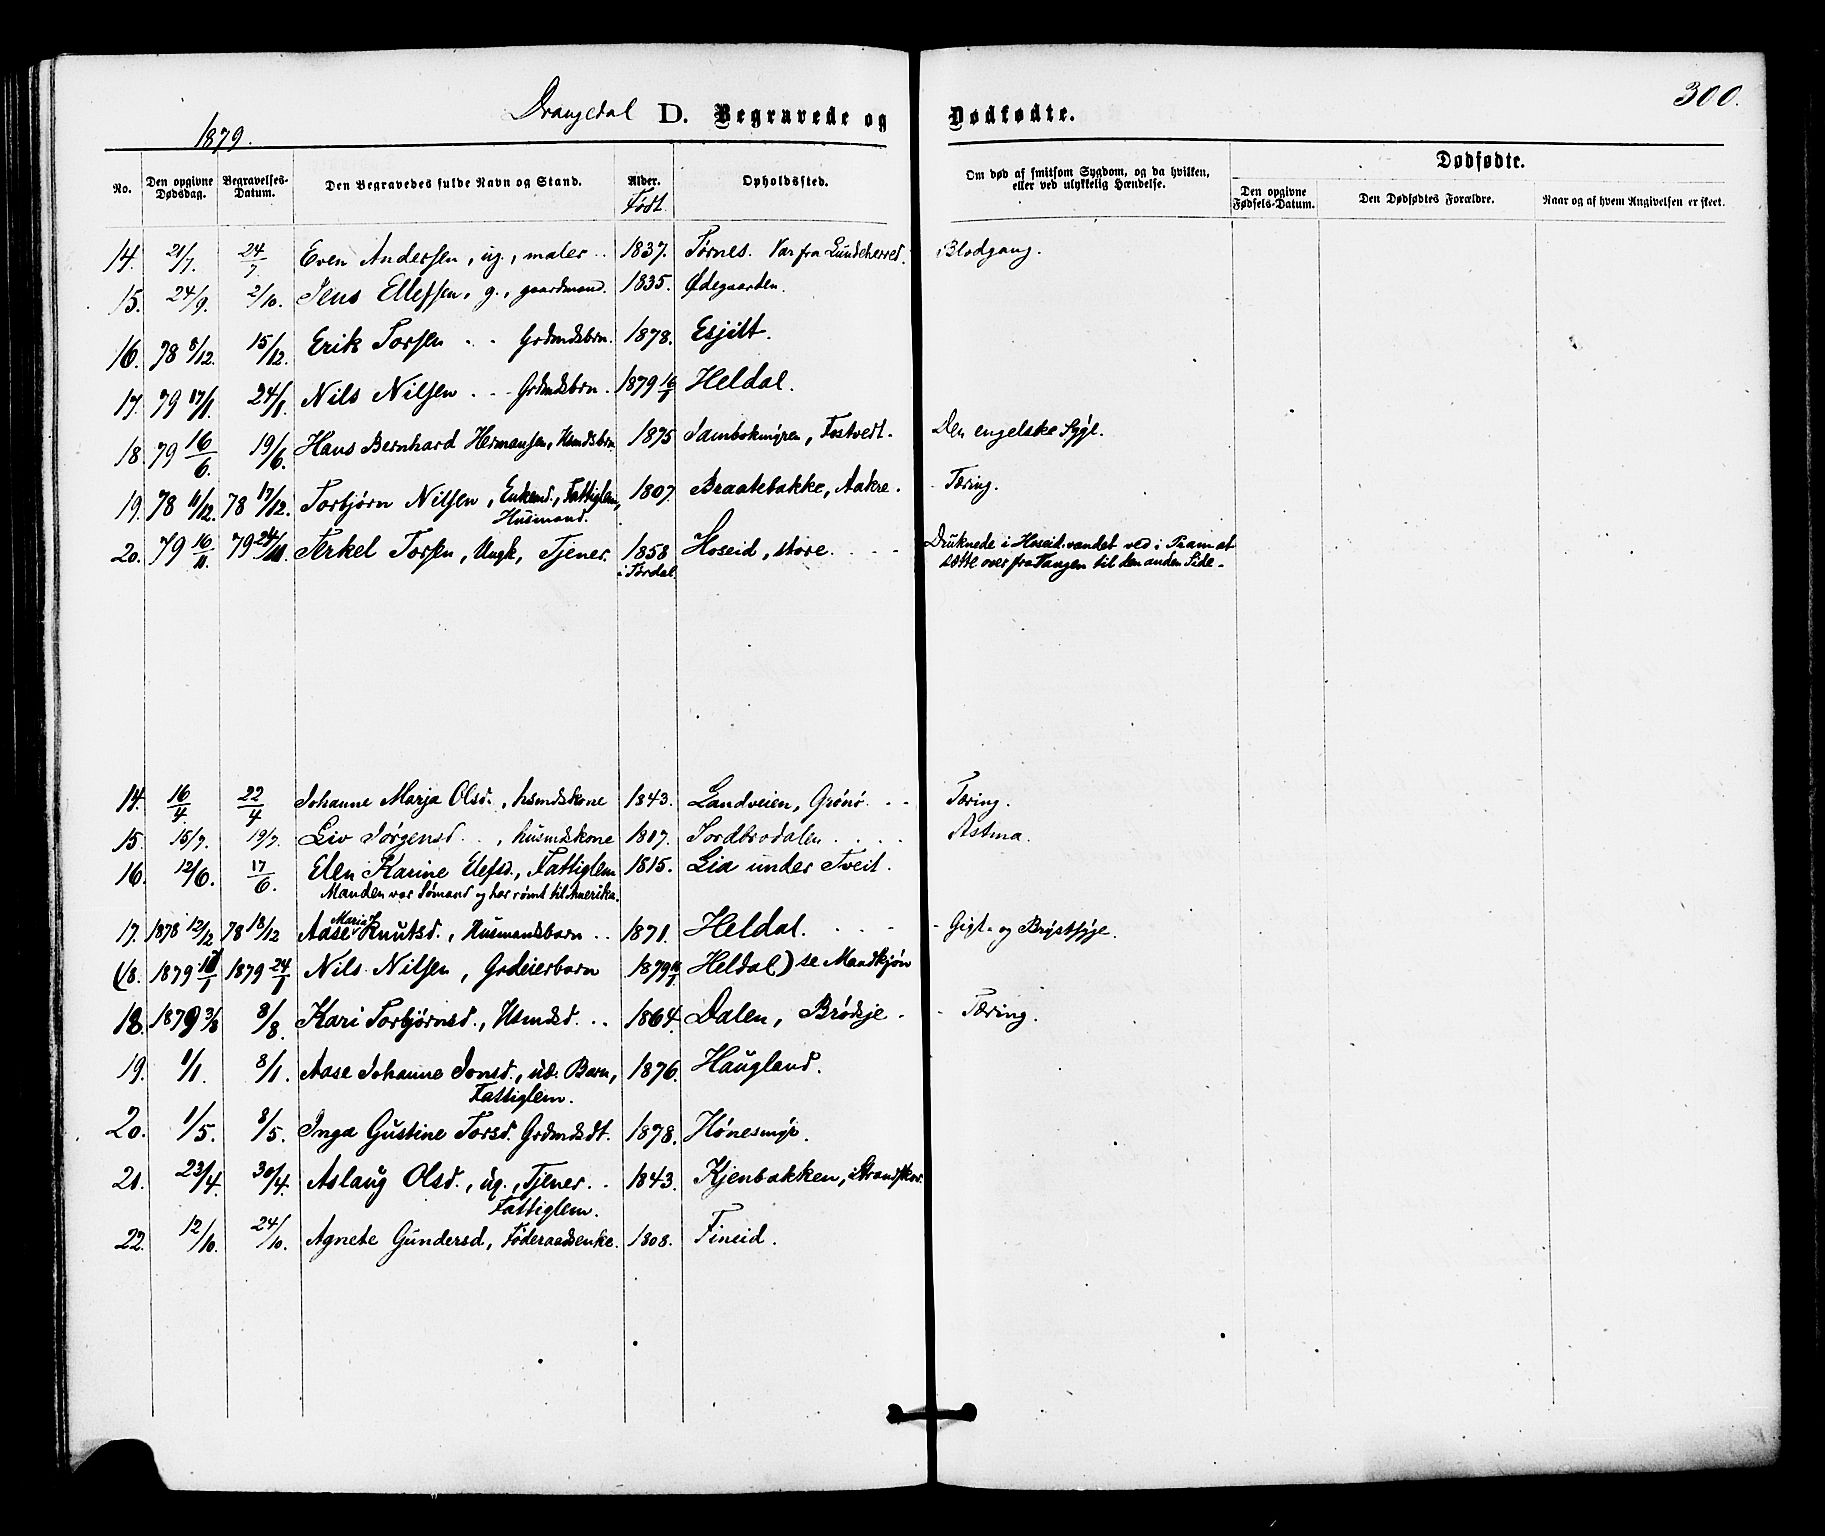 300.
Drangedal D. Begravede og Dødfødte.
1879.
No. Den opgivne Dødsdag. Begravelses-Datum. Den Begravedes fulde Navn og Stand. Alder. Født. Opholdssted. Om død af smitsom Sygdom, og da hvilken, eller ved ulykkelig Hændelse. Dødfødte. Den opgivne Fødsels-Datum. Den Dødfødtes Forældre. Naar og af hvem Angivelsen er skeet.
14. 21/7. 24/7 Even Andersen, ug., maler .. 1837. Tørnes. Var fra Lundeherred. Blodgang.
15. 24/9. 2/10. Jens Ellefsen, g., gaardmand. 1835. Ødegaarden.
16. 78 8/12. 15/12. Erik Torsen .. Grdmdsbrn. 1878. Esjilt.
17. 79 17/1. 24/1. Nils Nilsen ... Grdmdsbrn. 1879 16/1 Heldal.
18. 79 16/6. 19/6. Hans Bernhard Hermansen, Hsmdsbrn. 1875 Sambokmyren, Tostvedt. Den engelske Syge.
19. 78 11/12. 78 17/12. Torbjørn Nilsen, Enkemd., Fattiglem, 1807. Braatebakke, Aakre. - Tæring.
Husmand.
20. 79 16/11. 79 24/11. Terkel Torsen, Ungk., Tjener. 1858 Hoseid, store. Druknede i Hoseidvandet ved i Pram at
i Tørdal. sætte over fra Tangen til den anden Side.
14. 16/4 22/4 Johanne Marja Olsd., hsmdskone 1843. Landveien, Grønø. .. Tæring.
15. 15/7. 19/7. Liv Jørgensd. .., husmdskone 1817. Jordbrodalen .... Astma.
16. 12/6. 17/6. Elen Karine Elefsd., Fattiglem 1815. Lia under Tveit.
Manden var Sømand og har rømt til Amerika.
17. 1878 12/12 78 18/12 Aase Maria Knutsd., Husmandsbarn .. 1871. Heldal. .... - Gigt- og Brystsyge.
(18. 1879 17/1 1879 24/1 Nils Nilsen, Grdeierbarn 1879 16/1 Heldal) se Mandkjøn
18. 1879 3/8 8/8. Kari Torbjørnsd., Hsmdsd. .. 1864. Dalen, Brødsje - - Tæring.
19. 1/1. 8/1. Aase Johanne Jonsd., uæ. Barn, 1876. Haugland.
Fattiglem.
20. 1/5. 8/5. Inga Gustine Torsd. Grdmdsdt. 1878. Hønesmyr.
21. 23/4. 30/4. Aslaug Olsd., ug., Tjener .. 1843. Kjenbakken, i Strandskov.
Fattiglem.
22. 12/10. 24/10. Agnete Gundersd., Føderaadsenke. 1808. Fineid.